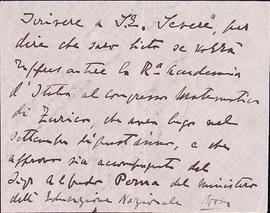 Scrivere a S.E. Severi, per
dire che sarò lieto se vorrà
rappresentare la R. Accademia
d'Italia al congresso Matematico
di Zurico, che avrà luogo nel
settembre di quest'anno, e che
approvo sia accompagnato dal
Sigr Alfredo Perna del ministero
dell'Educazione Nazionale